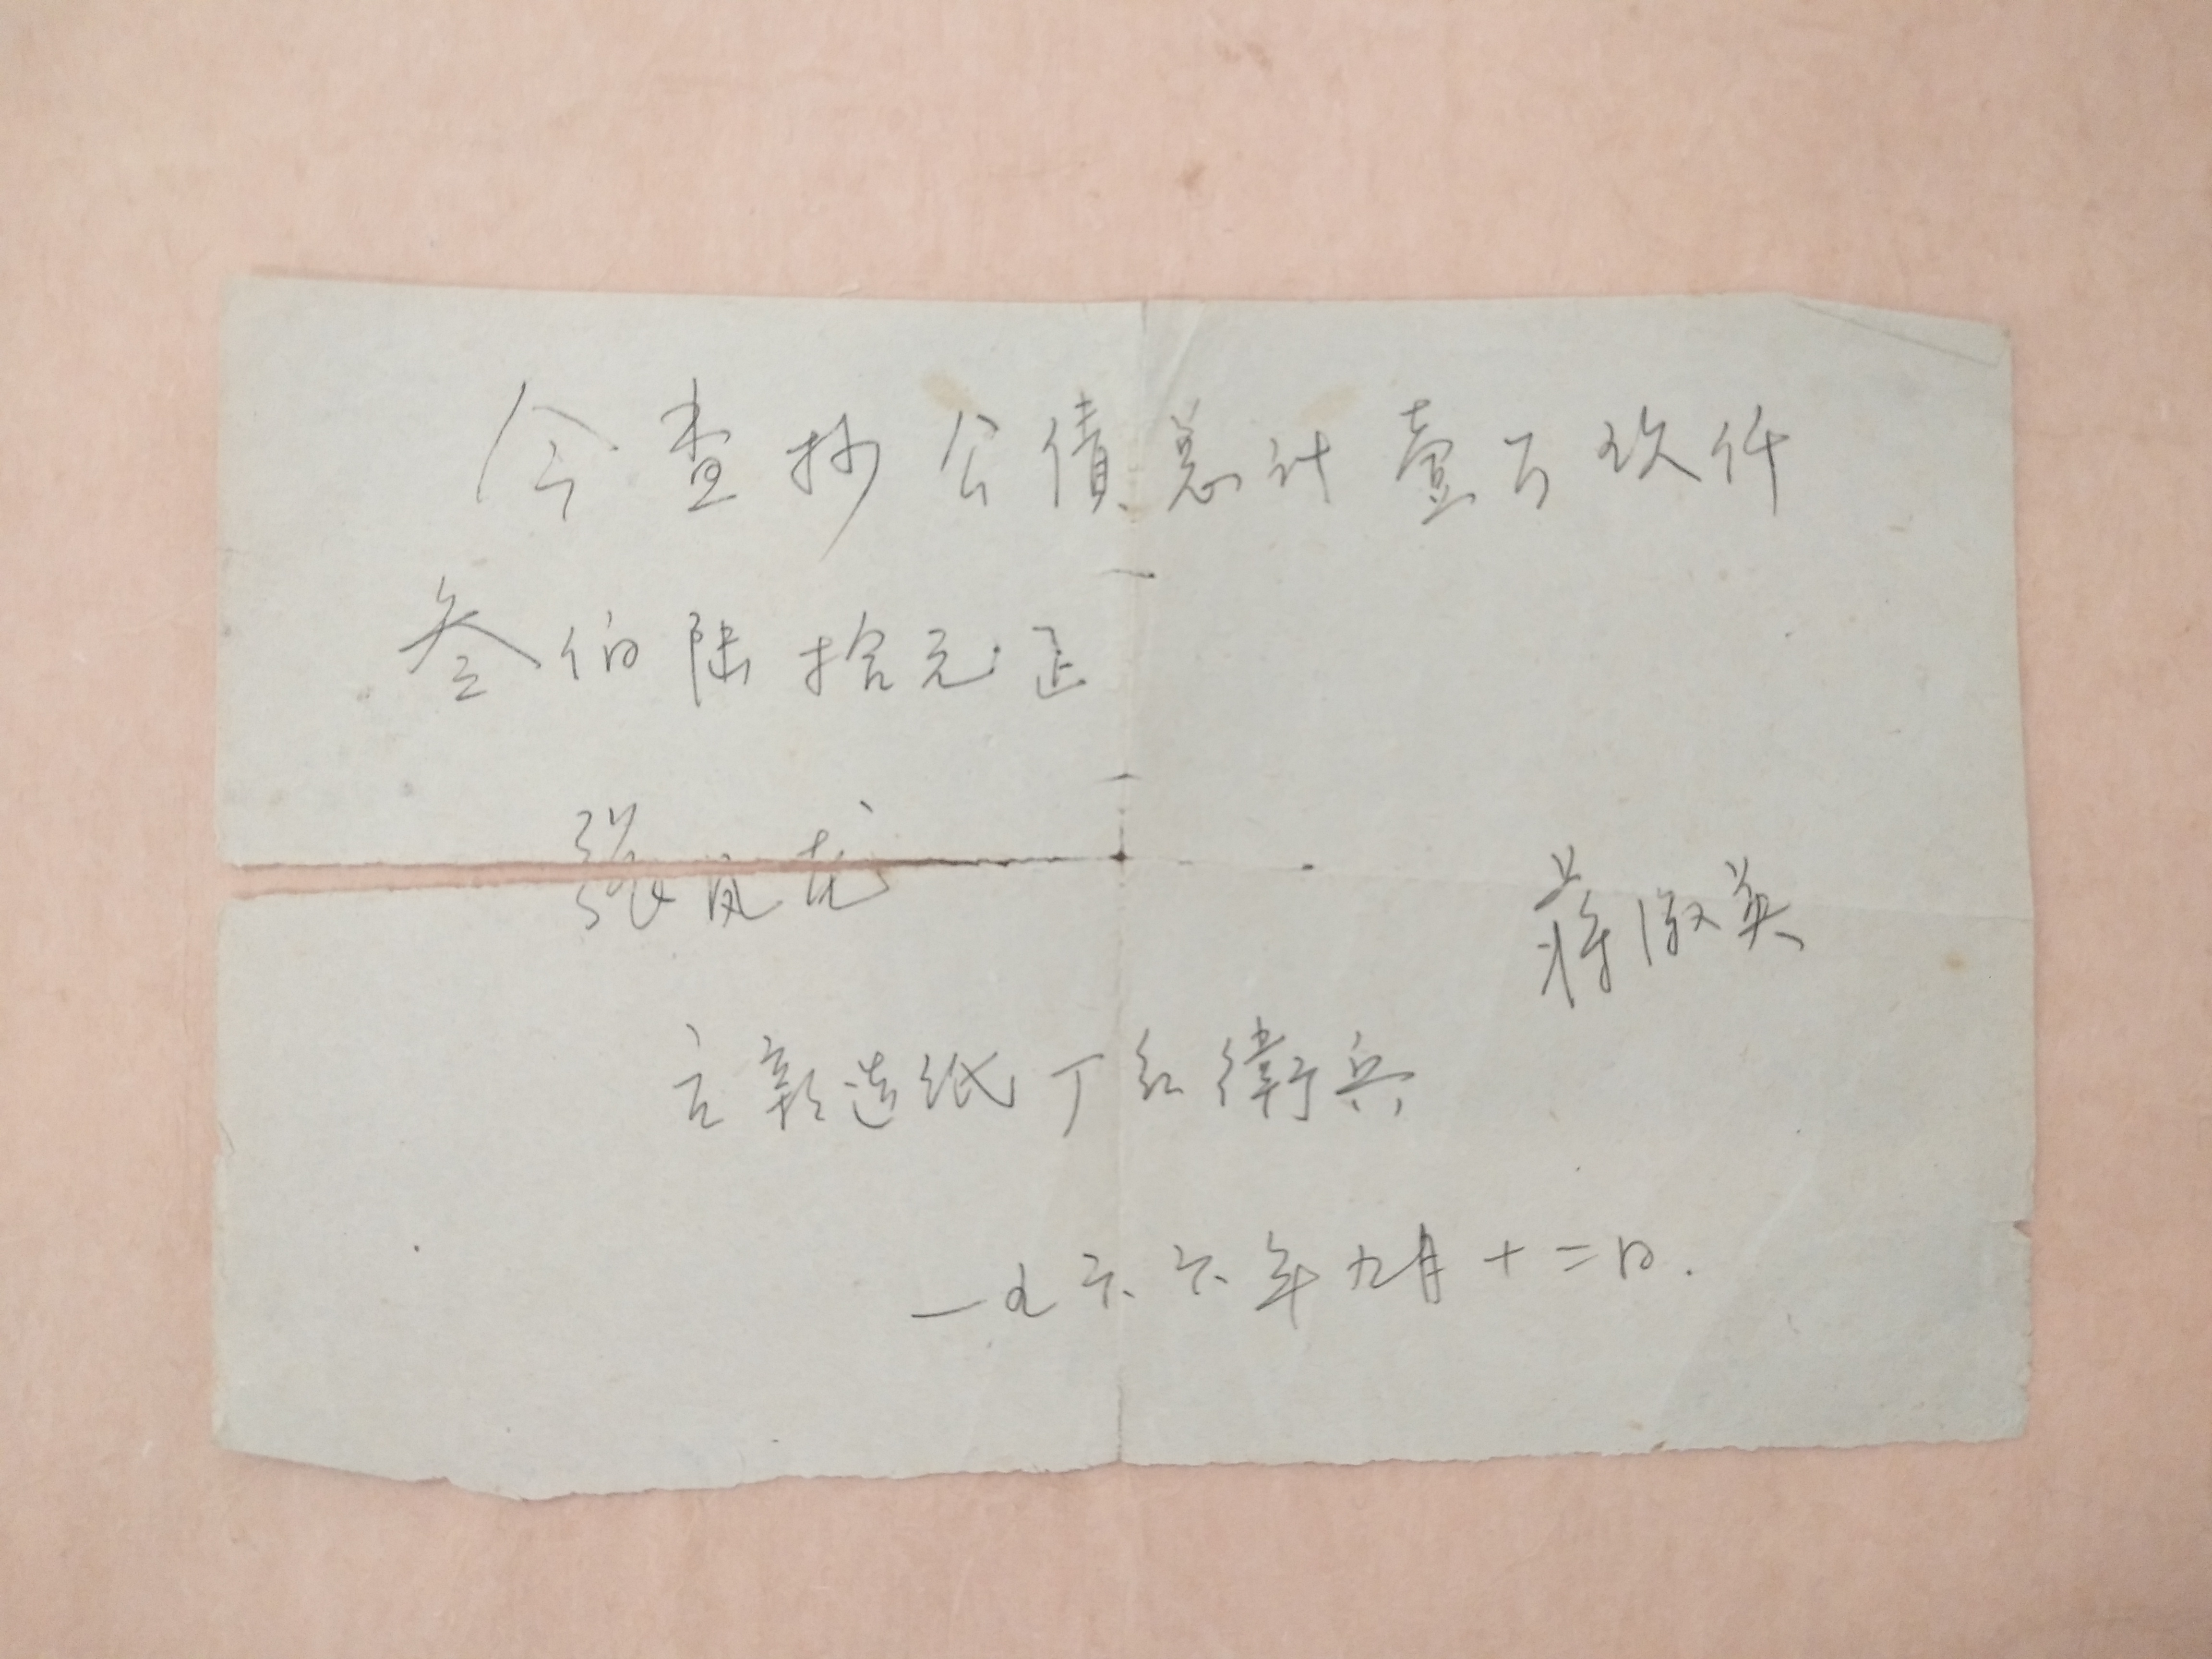 今查抄公债总计壹万玖仟
叁伯陆拾元正
张凤龙
蒋淑英
立新造纸厂红衛兵
一九六六年九月十二日.